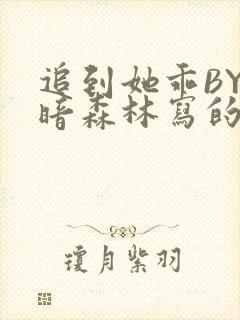 追到她乖BY
暗森林寫的
瓊月紫羽